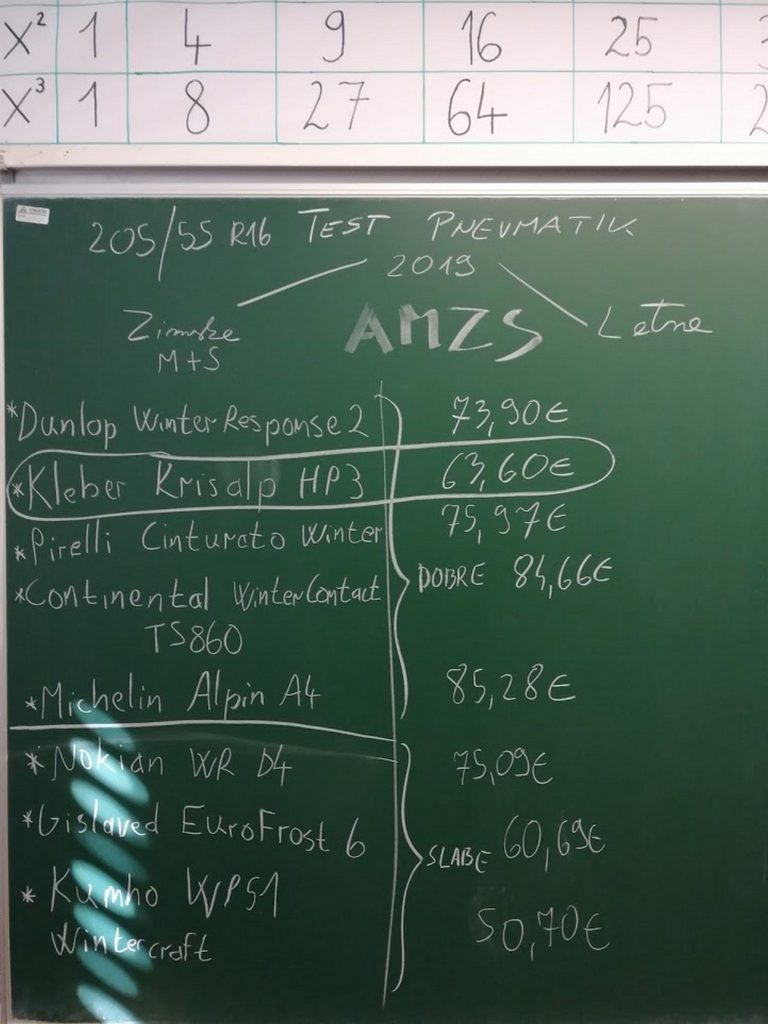 X² 1 4 9 16 25
X³ 1 8 27 64 125
205/55 R16 TEST PNEVMATIK
2019
Zimske AMZS Letne
M+S
*Dunlop Winter Response 2 73,90€
*Kleber Krisalp HP3 63,60€
*Pirelli Cinturato Winter 75,97€
*Continental WinterContact DOBRE 84,66€
TS860
*Michelin Alpin A4 85,28€
*Nokian WR D4 75,09€
*Gislaved EuroFrost 6 SLABE 60,69€
*Kumho WP51 50,70€
Wintercraft